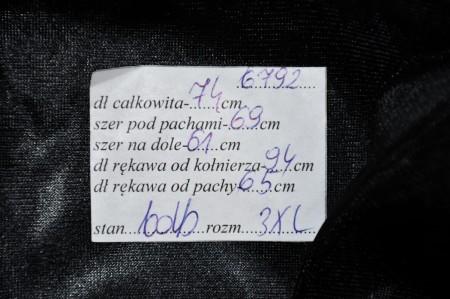 6792
dł całkowita-74cm
szer pod pachami-69cm
szer na dole-61cm
dł rękawa od kołnierza-94cm
dł rękawa od pachy-65cm
stan bdb rozm 3XL